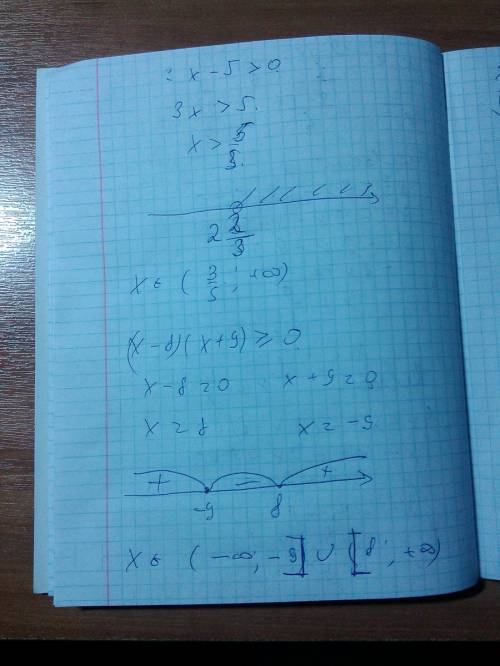 3x - 5 > 0
3x > 5
x > 5/3
2 2/3
x ∈ (3/5; +∞)
(x - 8)(x + 9) ≥ 0
x - 8 = 0 x + 9 = 0
x = 8 x = -9
+ - +
-9 8
x ∈ (-∞; -9] ∪ [8; +∞)